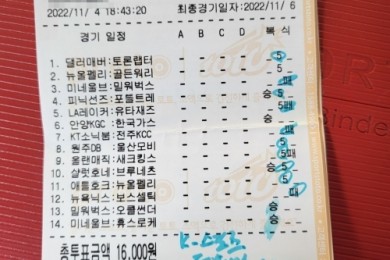 2022/11/ 4 18:43:20 최종경기일자:2022/11/ 6
경기 일정 A B C D 복 식
1. 댈러매버:토론랩터 - - - - 5
2. 뉴올펠리:골든워리 - - - - 5
3. 미네울브:밀워벅스 - - - - 패
4. 피닉선즈:포틀트레 - - - - 승
5. LA레이커:유타재즈 - - - - 5
6. 안양KGC:한국가스 - - - - 승
7. KT소닉붐:전주KCC - - - - 패
8. 원주DB:울산모비 - - - - 5
9. 올랜매직:새크킹스 - - - - 5패
10. 샬럿호네:브루네츠 - - - - 승
11. 애틀호크:뉴올펠리 - - - - 5
12. 뉴욕닉스:보스셀틱 - - - - 패
13. 밀워벅스:오클썬더 - - - - 승
14. 미네울브:휴스로케 - - - - 승
총투표금액 16,000원